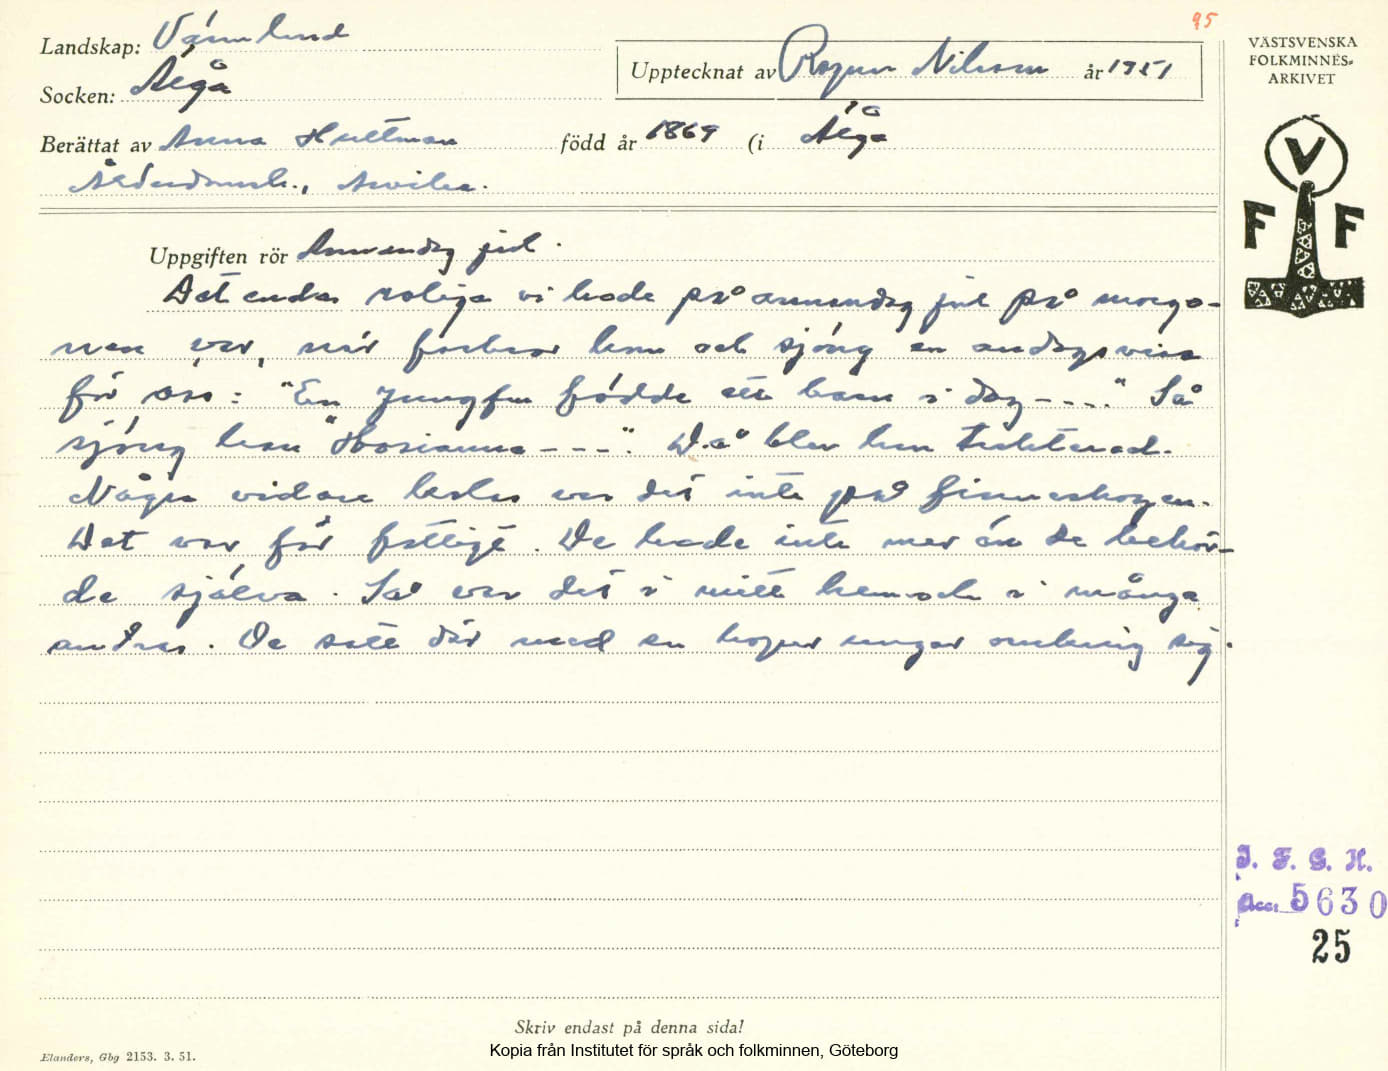 95
Landskap: Värmland
Socken: Älgå
Upptecknat av Ragnar Nilsson år 1951
Berättat av Anna Hultman född år 1869 (i Älgå
Ålderdomsh., Arvika.
VÄSTSVENSKA
FOLKMINNES-
ARKIVET
V
F F
Uppgiften rör Annandag jul.
Det enda roliga vi hade på annandag jul på morgo-
nen var, när farbror kom och sjöng en andagsvisa
för oss: "En Jungfru födde ett barn i dag----" Så
sjöng han "Hosianna----". Då blev han trakterad.
Några vidare kalas var det inte på finnskogen.
Det var för fattigt. De hade inte mer än de behöv-
de själva. Så var det i mitt hem och i många
andras. De satt där med en hoper ungar omkring sig.
I. F. G. H.
Acc. 5630
25
Skriv endast på denna sida!
Elanders, Gbg 2153. 3. 51.
Kopia från Institutet för språk och folkminnen, Göteborg